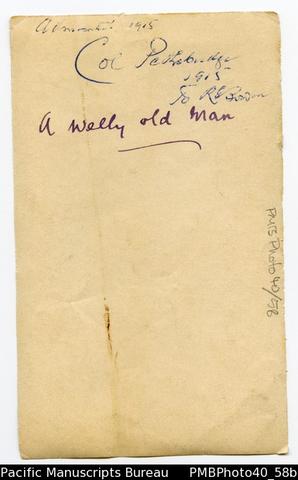 1915
Col Pethebridge
1915
To
A Welly old Man
PMB Photo 40/58
Pacific Manuscripts Bureau PMBPhoto40_58b